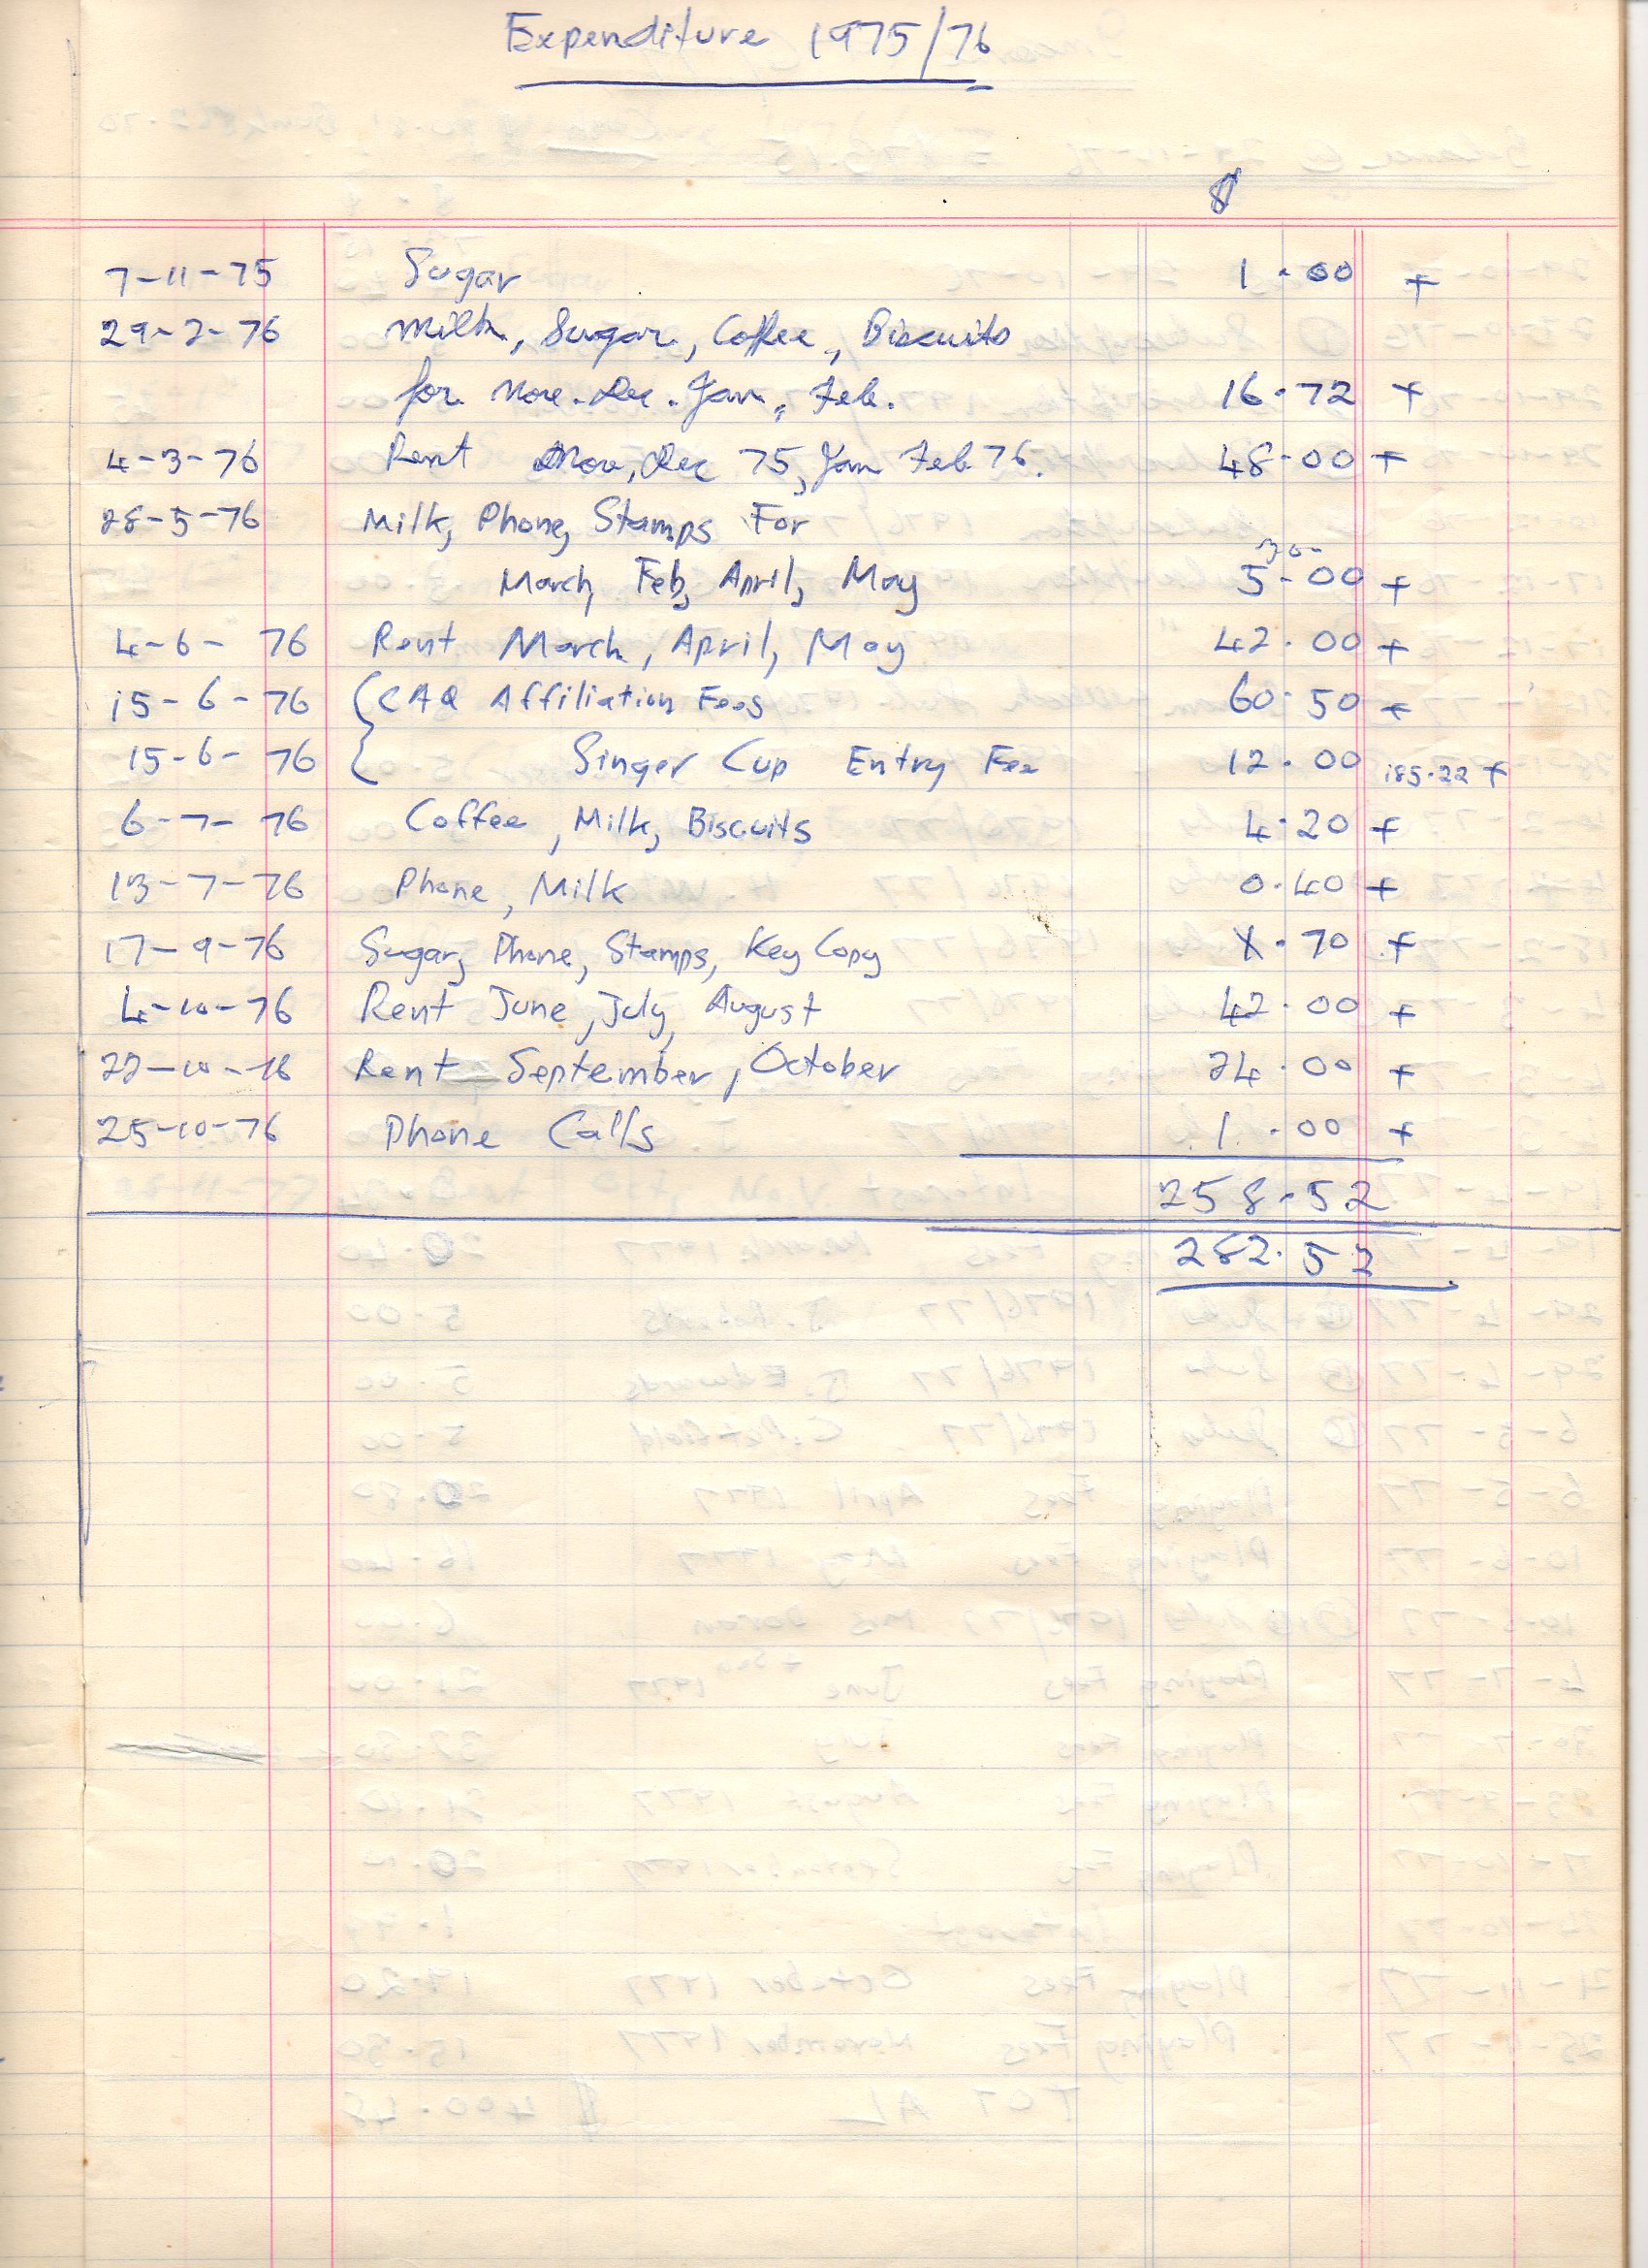 Expenditure 1975/76
$
7-11-75 Sugar 1.00 +
29-2-76 Milk, Sugar, Coffee, Biscuits
for Nov. Dec. Jan, Feb. 16.72 +
4-3-76 Rent Nov, Dec 75, Jan Feb 76. 48.00 +
28-5-76 Milk, Phone, Stamps For
March, Feb, April, May 5.00 +
4-6-76 Rent March, April, May 42.00 +
15-6-76 CAQ Affiliation Fees 60.50 +
15-6-76 Singer Cup Entry Fee 12.00 185.22 +
6-7-76 Coffee, Milk, Biscuits 4.20 +
13-7-76 Phone, Milk 0.40 +
17-9-76 Sugar, Phone, Stamps, Key Copy .70 +
4-10-76 Rent June, July, August 42.00 +
22-10-76 Rent September, October 24.00 +
25-10-76 Phone Calls 1.00 +
258.52
282.52